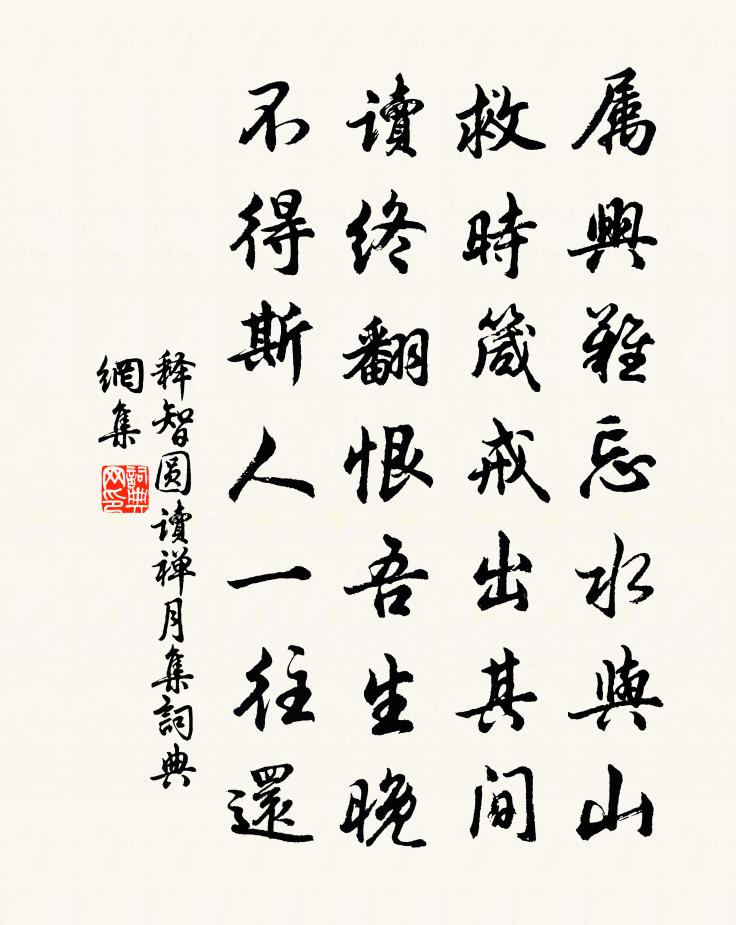 属興難忘水與山
救時箴戒出其间
讀終翻恨吾生晚
不得斯人一往還
释智圆讀禅月集詞典
網集
詞典
网印